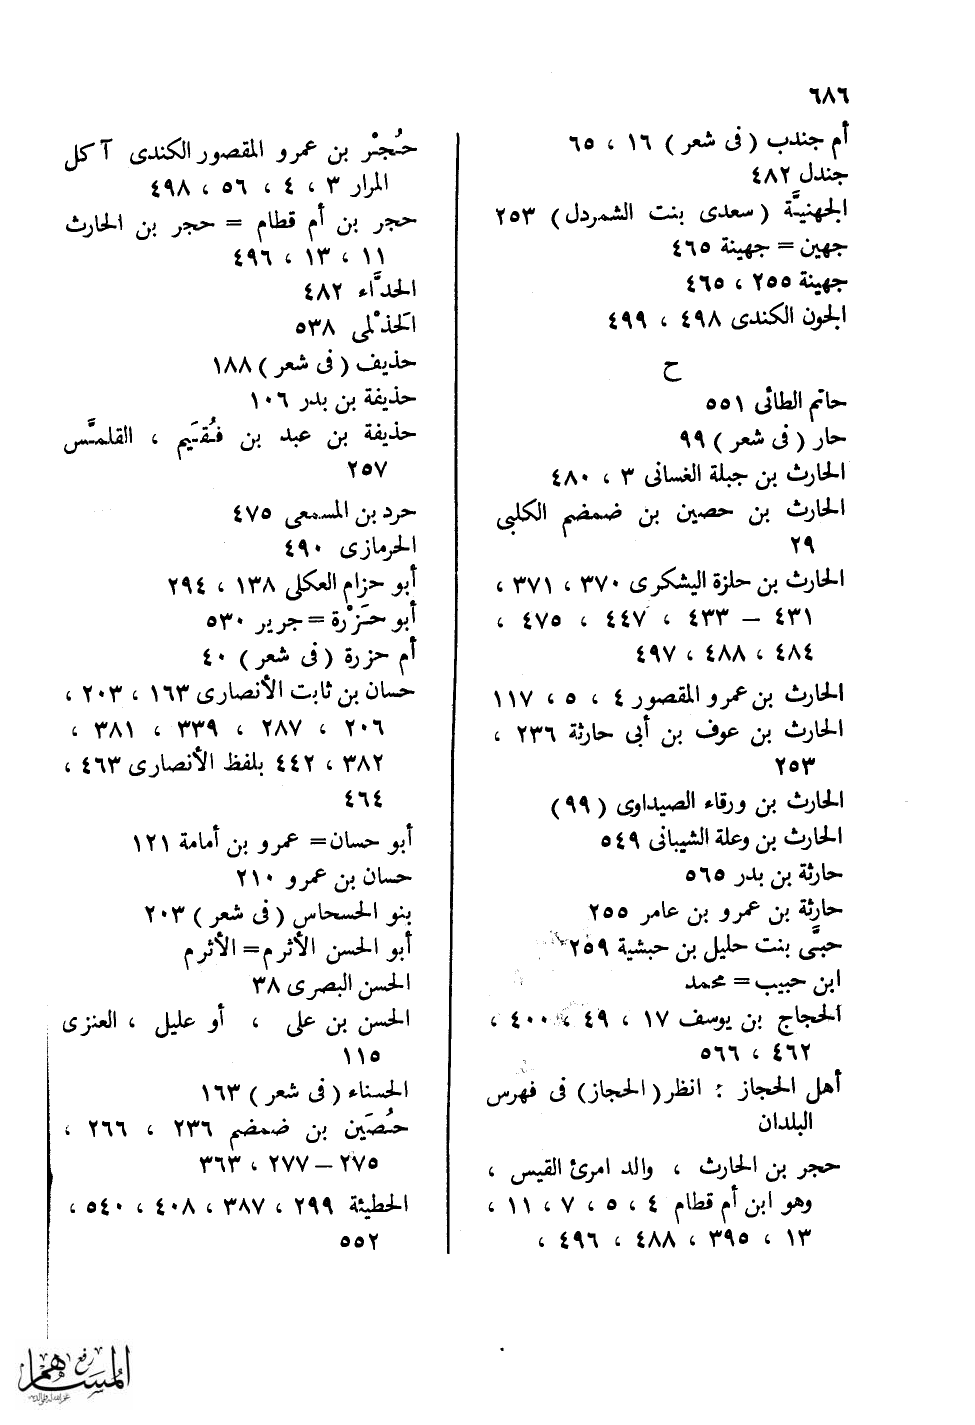 ٦٨٦
أم جندب (فى شعر) ١٦ ، ٦٥
جندل ٤٨٢
الجهنيَّة (سعدى بنت الشمردل) ٢٥٣
جهين = جهينة ٤٦٥
جهينة ٢٥٥ ، ٤٦٥
الجون الكندى ٤٩٨ ، ٤٩٩
ح
حاتم الطائى ٥٥١
حار (فى شعر) ٩٩
الحارث بن جبلة الغسانى ٣ ، ٤٨٠
الحارث بن حصين بن ضمضم الكلبى
٢٩
الحارث بن حلزة اليشكرى ٣٧٠ ، ٣٧١ ،
٤٣١ – ٤٣٣ ، ٤٤٧ ، ٤٧٥ ،
٤٨٤ ، ٤٨٨ ، ٤٩٧
الحارث بن عمرو المقصور ٤ ، ٥ ، ١١٧
الحارث بن عوف بن أبى حارثة ٢٣٦ ،
٢٥٣
الحارث بن ورقاء الصيداوى (٩٩)
الحارث بن وعلة الشيبانى ٥٤٩
حارثة بن بدر ٥٦٥
حارثة بن عمرو بن عامر ٢٥٥
حبىَّ بنت حليل بن حبشية ٢٥٩
ابن حبيب = محمد
الحجاج بن يوسف ١٧ ، ٤٩ ، ٤٠٠ ،
٤٦٢ ، ٥٦٦
أهل الحجاز : انظر (الحجاز) فى فهرس
البلدان
حجر بن الحارث ، والد امرئ القيس ،
وهو ابن أم قطام ٤ ، ٥ ، ٧ ، ١١ ،
١٣ ، ٣٩٥ ، ٤٨٨ ، ٤٩٦ ،
حُجْر بن عمرو المقصور الكندى آكل
المرار ٣ ، ٤ ، ٥٦ ، ٤٩٨
حجر بن أم قطام = حجر بن الحارث
١١ ، ١٣ ، ٤٩٦
الحدَّاء ٤٨٢
الحَذْلمى ٥٣٨
حذيف (فى شعر) ١٨٨
حذيفة بن بدر ١٠٦
حذيفة بن عبد بن فُقَيم ، القلمَّس
٢٥٧
حرد بن المسمعى ٤٧٥
الحرمازى ٤٩٠
أبو حزام العكلى ١٣٨ ، ٢٩٤
أبو حَزْرة = جرير ٥٣٠
أم حزرة (فى شعر) ٤٠
حسان بن ثابت الأنصارى ١٦٣ ، ٢٠٣ ،
٢٠٦ ، ٢٨٧ ، ٣٣٩ ، ٣٨١ ،
٣٨٢ ، ٤٤٢ بلفظ الأنصارى ٤٦٣ ،
٤٦٤
أبو حسان = عمرو بن أمامة ١٢١
حسان بن عمرو ٢١٠
بنو الحسحاس (فى شعر) ٢٠٣
أبو الحسن الأثرم = الأثرم
الحسن البصرى ٣٨
الحسن بن على ، أو عليل ، العنزى
١١٥
الحسناء (فى شعر) ١٦٣
حُصَين بن ضمضم ٢٣٦ ، ٢٦٦ ،
٢٧٥ – ٢٧٧ ، ٣٦٣
الحطيئة ٢٩٩ ، ٣٨٧ ، ٤٠٨ ، ٥٤٠ ،
٥٥٢
رفع
المساهم